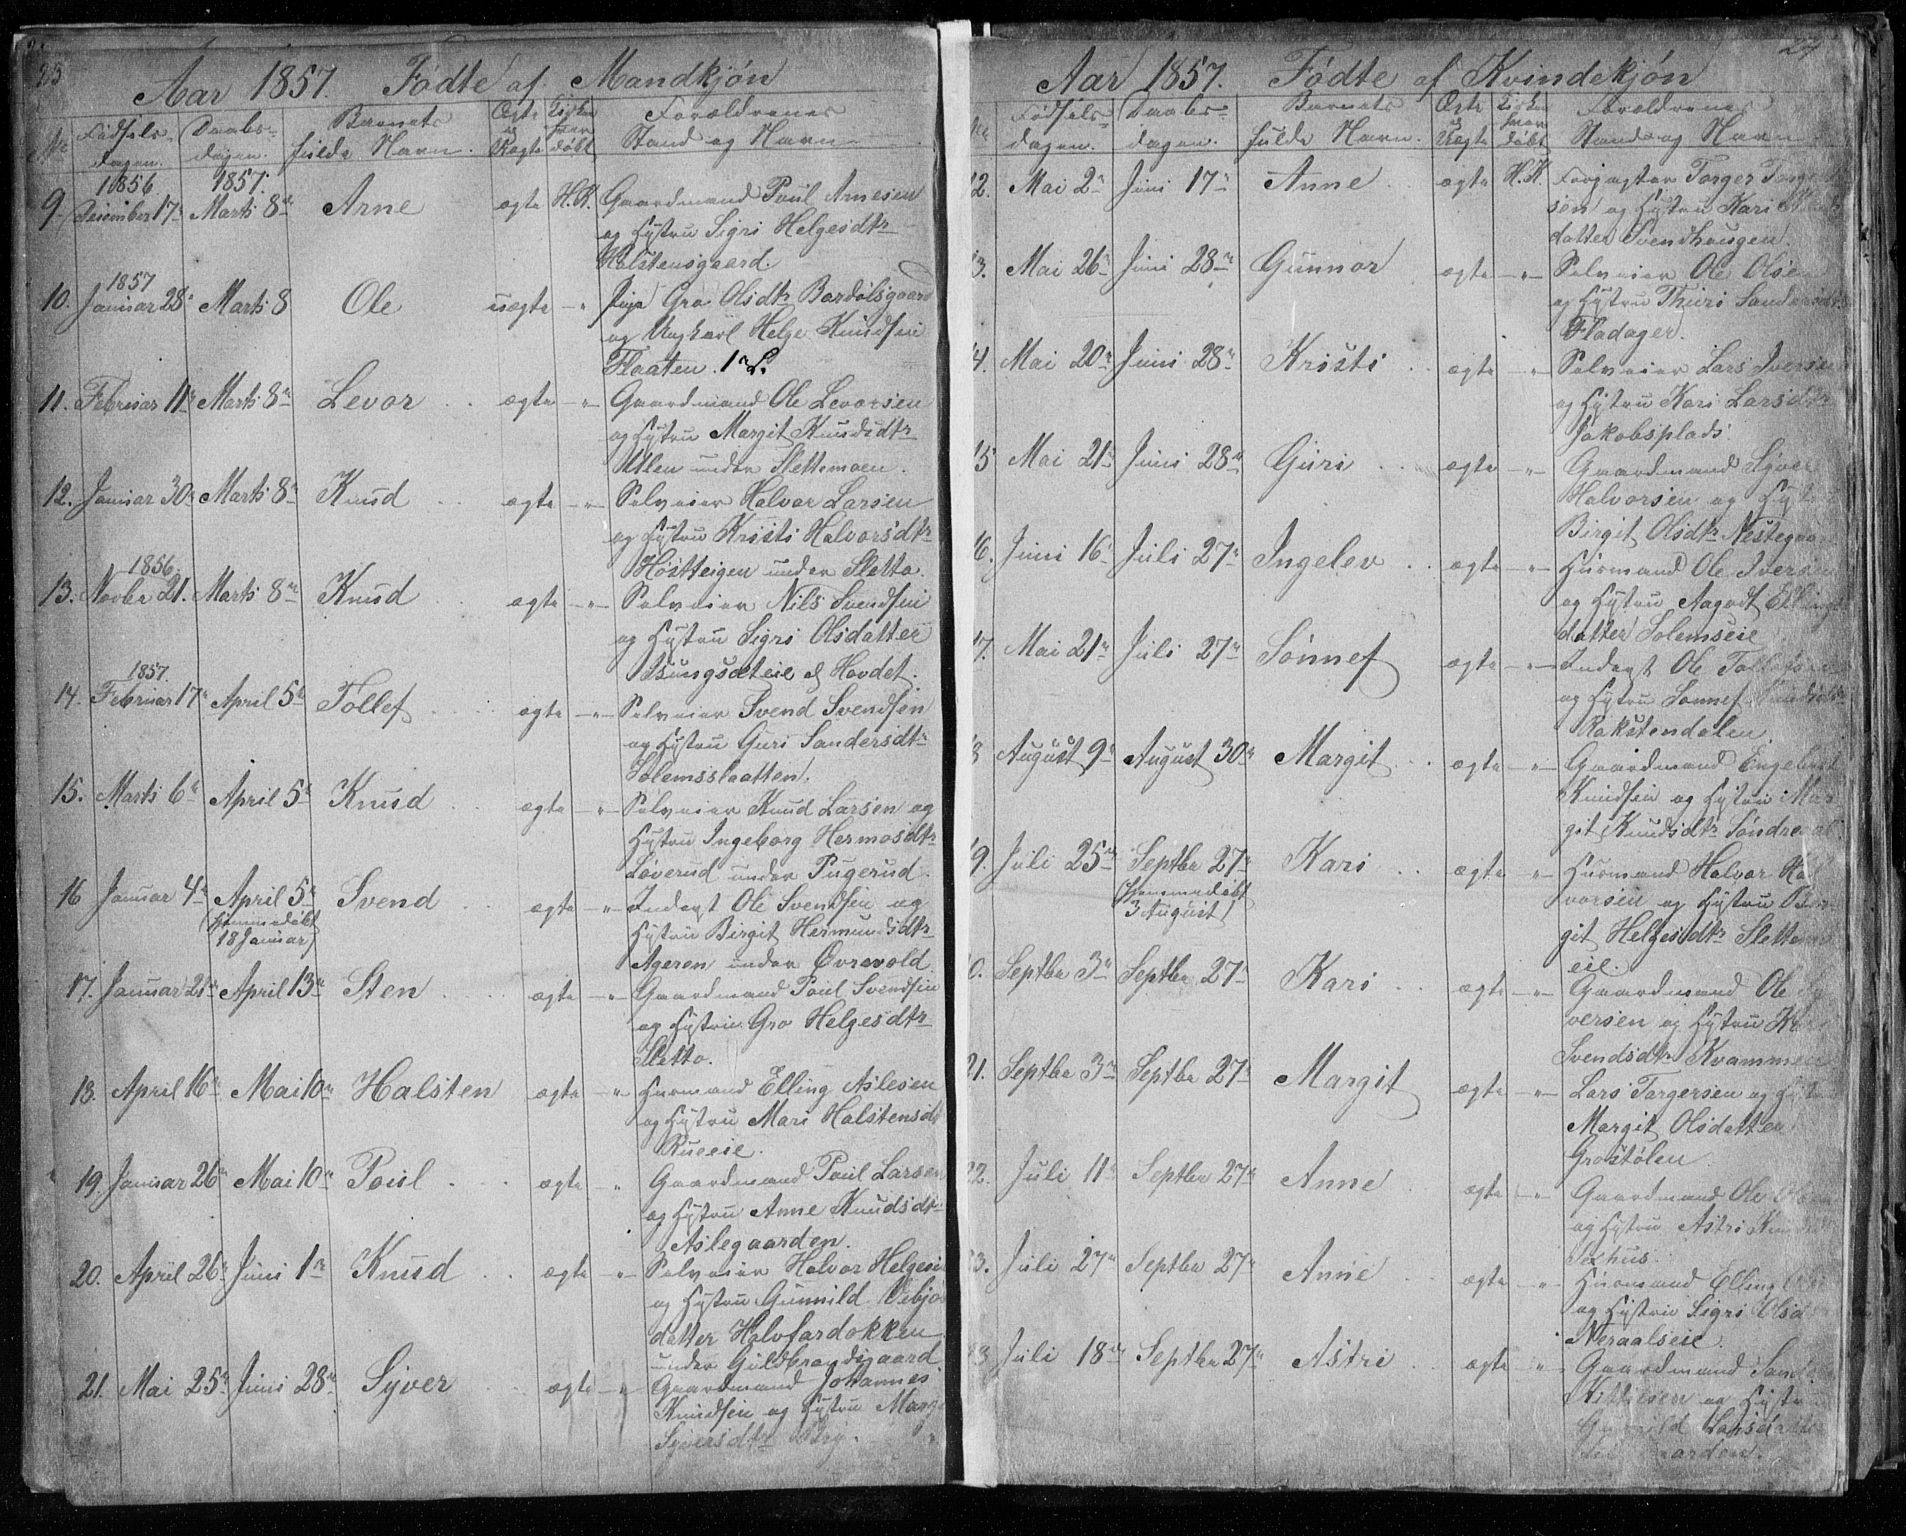 Aar 1857. Fødte af Mandkjøn
No
Fødsels-
dagen.
Daabs-
dagen.
Barnets
fulde Navn.
Ægte
Uægte
døbt
Forældrenes
Stand og Navn
9. 1856 December 17 1857. Marts 8de Arne ægte H.K. Gaardmand Poul Arnesen
og Hustru Sigri Helgesdtr
Halstensgaard.
10. 1857 Januar 28 Marts 8 Ole uægte " Pige Gro Olsdtr Bardølsgaard
og Ungkarl Helge Knudsen
Flaaten.
11. Februar 11te Marts 8de Levor ægte " Gaardmand Ole Levorsen
og Hustru Margit Knudsdtr
under Slettemoen.
12. Januar 30te Marts 8de Knud ægte " Selveier Halvor Larsen
og Hustru Kristi Halvorsdtr
under Sletto.
13. 1856 Novbr 21. Marts 8de Knud ægte " Selveier Nils Svendsen
og Hustru Sigri Olsdatter
Hovdet.
14. 1857. Februar 17 April 5te Tollef ægte " Selveier Svend Svendsen
og Hustru Guri Sandersdtr
Solemsslaatten.
15. Marts 6te April 5te Knud ægte " Selveier Knud Larsen og
Hustru Ingeborg Hermosdtr
Løverud under Pugerud.
16 Januar 4de April 5te (Hjemmedøbt 18 Januar) Svend ægte " Inderst Ole Svendsen og
Hustru Birgit Hermundsdtr
Ageren under Øvrevold.
17. Januar 21de April 13de Sten ægte " Gaardmand Poul Svendsen
og Hustru Gro Helgesdtr
Sletto.
18. April 16de Mai 10de Halsten ægte " Husmand Elling Aslesen
og Hustru Mari Halstensdtr
Rueeie.
19. Januar 26de Mai 10de Poul ægte " Gaardmand Poul Larsen
og Hustru Anne Knudsdtr
Aslegaarden.
20. April 26de Juni 1ste Knud ægte " Selveier Halvor Helgesen
og Hustru Gunnild
datter Halvfardokken
under Guldbrandsgaard
21. Mai 25de Juni 28de Syver ægte " Gaardmand Johannes
Knudsen og Hustru
Syversdtr
Aar 1857. Fødte af Kvindekjøn 24
Fødsels-
dagen.
Daabs-
dagen.
Barnets
fulde Navn.
Ægte
Uægte
døbt
Forældrenes
Stand og Navn
2. Mai 2de Juni 17de Anne ægte H.K. Forpagter Torger
sen og Hustru Kari
datter Svendhaugen.
3. Mai 26de Juni 28de Gunnor ægte " Selveier Ole Olsen
og Hustru Thuri Sandersdtr
Fladager.
4. Mai 20de Juni 28de Kristi ægte " Selveier Lars Iversen
og Hustru Kari Larsdtr
Jakobsplads.
15 Mai 21de Juni 28de Guri ægte " Gaardmand Syver
Halvorsen og Hustru
Birgit Olsdtr Nestegaard
16. Juni 16 Juli 27de Ingelev ægte " Husmand Ole Iversen
og Hustru Aagodt Ellings
datter Solemseie
17. Mai 21de Juli 27de Sønnef ægte " Inderst Ole Tollefsen
og Hustru Sønnef
Rokstendalen.
August 9de August 30te Margit ægte " Gaardmand Engebret
Knudsen og Hustru Mar
git Knudsdtr
19. Juli 25de Septbr 27de (Hjemmedøbt 3 August) Kari ægte " Husmand Halvor Hal
vorsen og Hustru
git Helgesdtr
eie.
0. Septbr 3de Septbr 27de Kari ægte " Gaardmand Ole
versen og Hustru
Svendsdtr Kvammen
21. Septbr 3de Septbr 27de Margit ægte " Lars Torgersen og Hustru
Margit Olsdatter
Grøstølen
22. Juli 11te Septbr 27de Anne ægte " Gaardmand Ole Olsen
og Hustru Astri
hus.
3. Juli 27de Septbr 27de Anne ægte " Husmand Elling
og Hustru Sigri
Neraalseie.
Juli 18de Septbr 27de Astri ægte " Gaardmand
og Hustru
Larsdatter